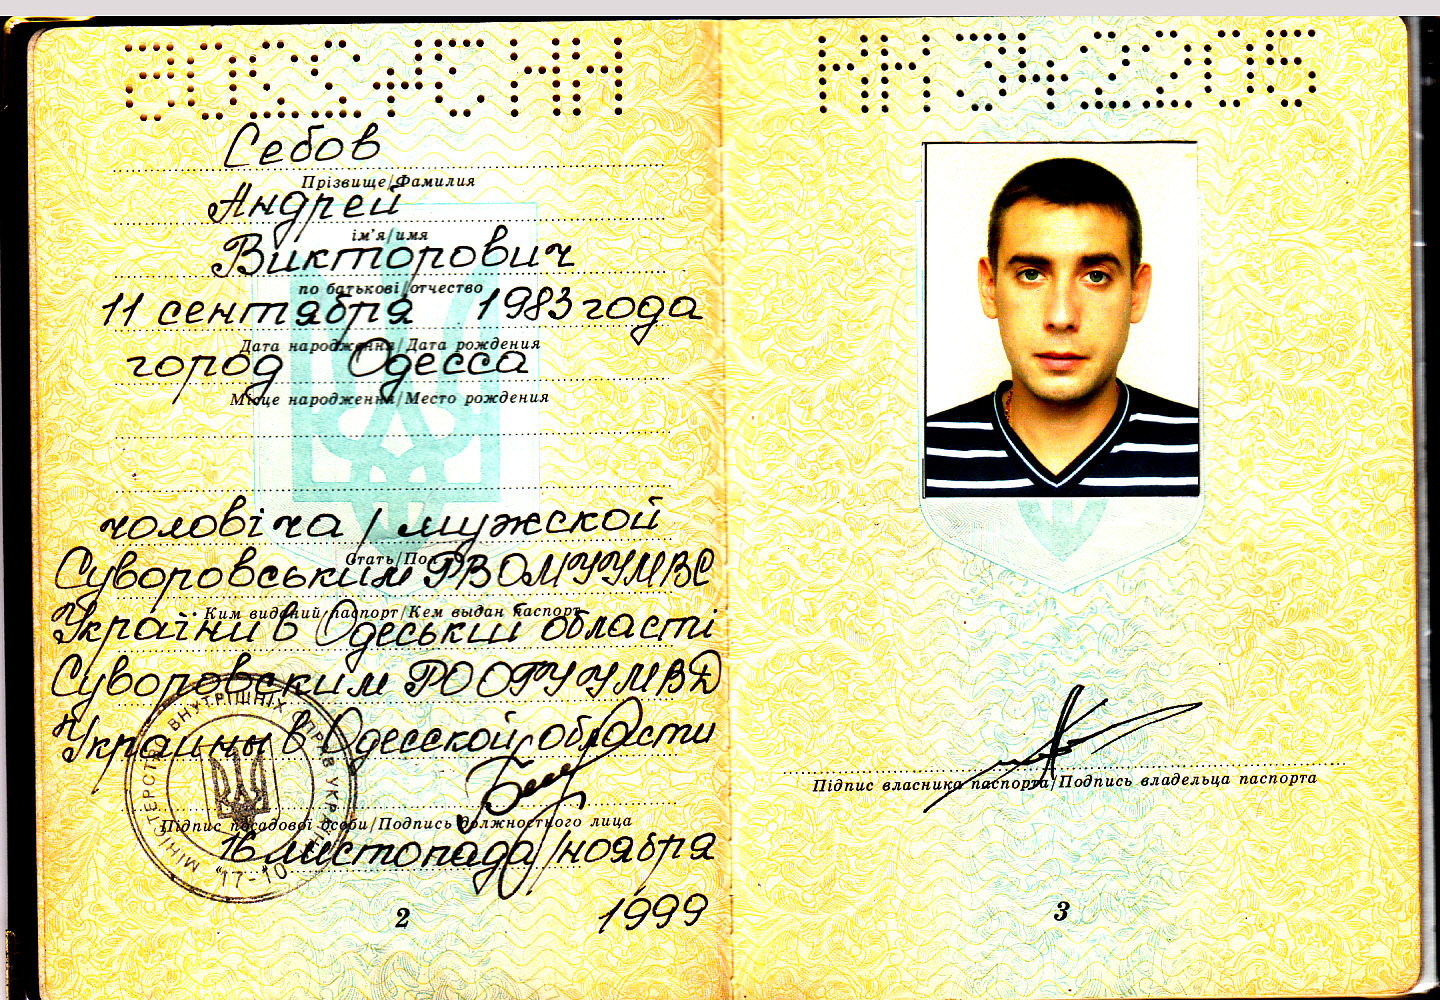 НН 342205
Себов
Прізвище/Фамилия
Андрей
ім'я/имя
Викторович
по батькові/отчество
11 сентября 1983 года
Дата народження/Дата рождения
город Одесса
Місце народження/Место рождения
чоловіча / мужской
Стать/Пол
Суворовським РВ ОМУ УМВС
Ким виданий паспорт/Кем выдан паспорт
України в Одеській області
Суворовским РО ОГУ УМВД
Украины в Одесской области
Підпис посадової особи/Подпись должностного лица
МІНІСТЕРСТВО ВНУТРІШНІХ СПРАВ УКРАЇНИ
"17-10"
16 листопада/ноября
1999
2
Підпис власника паспорта/Подпись владельца паспорта
3